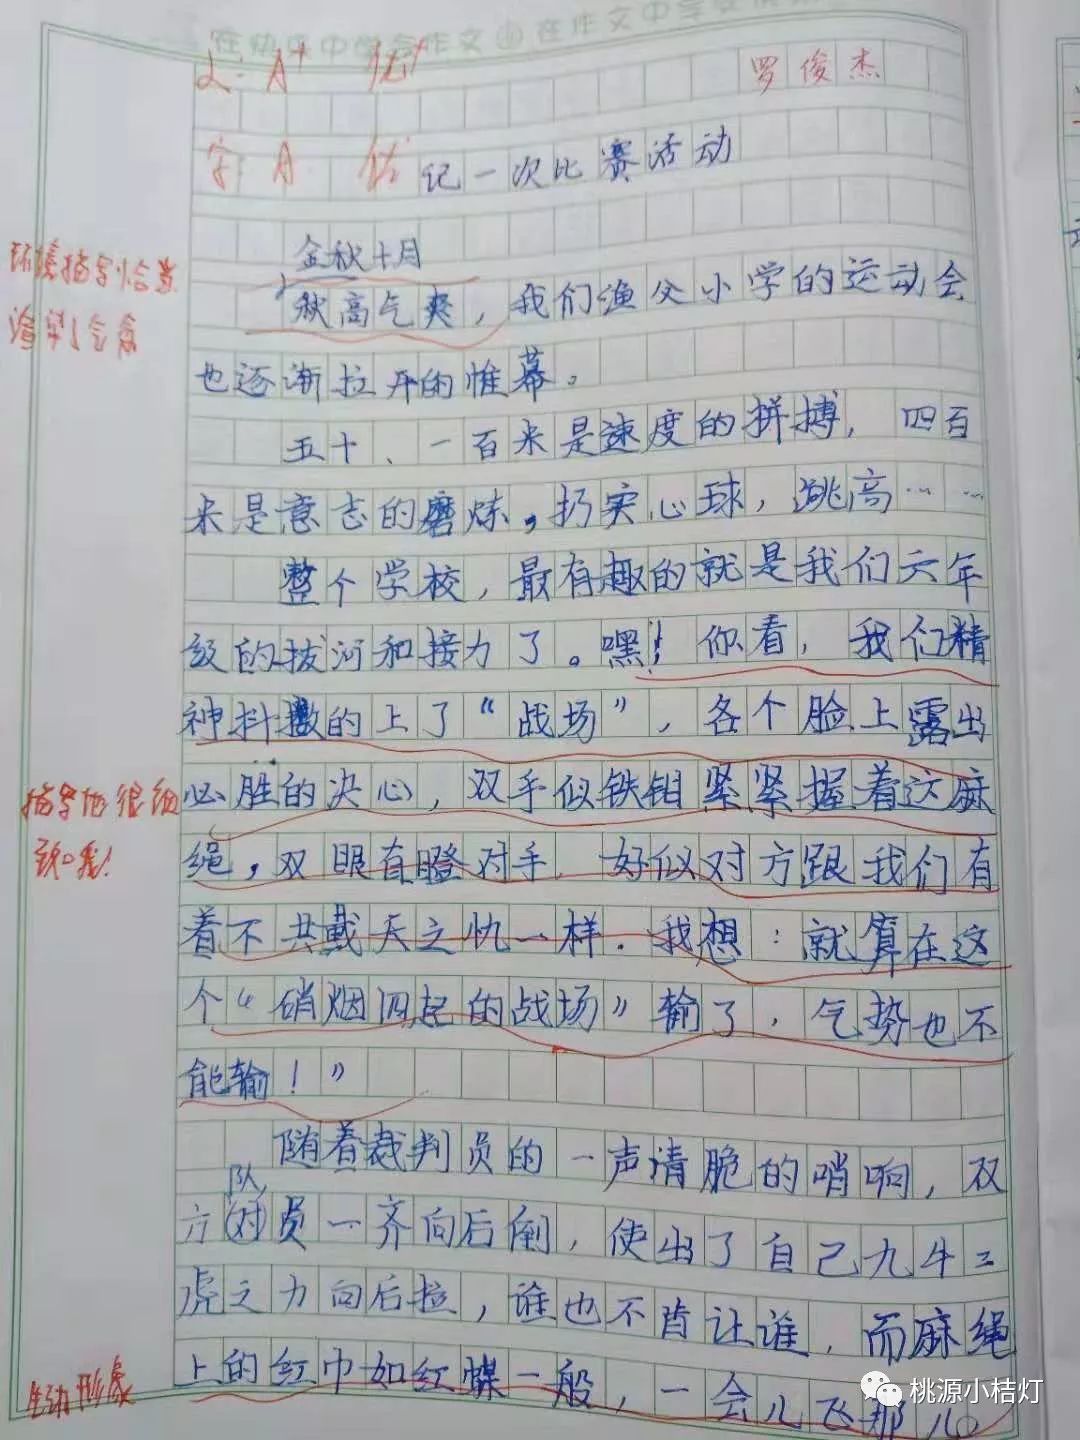 在快乐中学会作文 在作文中学会
文:A+ 优+
罗俊杰
字:A 优
记一次比赛活动
金秋十月
环境描写恰当
渲染了气氛
秋高气爽，我们渔父小学的运动会
也逐渐拉开的帷幕。
五十、一百米是速度的拼搏，四百
米是意志的磨炼，扔实心球，跳高……
整个学校，最有趣的就是我们六年
级的拔河和接力了。嘿！你看，我们精
神抖擞的上了“战场”，各个脸上露出
必胜的决心，双手似铁钳紧紧握着这麻
描写的很细
致哦！
绳，双眼直瞪对手，好似对方跟我们有
着不共戴天之仇一样.我想：就算在这
个“硝烟四起的战场”输了，气势也不
能输！”
随着裁判员的一声清脆的哨响，双
队
方(对)员一齐向后倒，使出了自己九牛二
虎之力向后拉，谁也不肯让谁，而麻绳
上的红巾如红蝶一般，一会儿飞那儿。
生动形象
桃源小桔灯